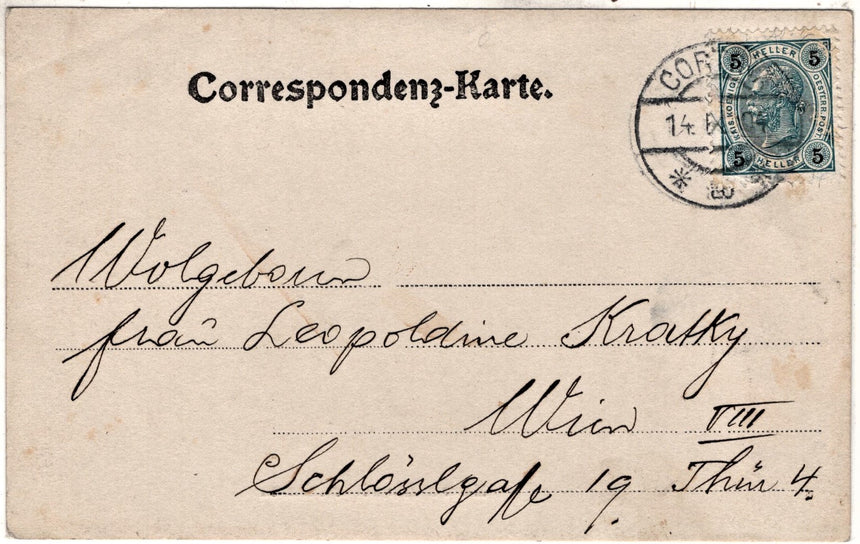 Correspondenz-Karte.
5 HELLER 5
KAIS. KOENIGL. OESTERR. POST.
5 HELLER 5
COR
14. IX
Wolgeborn
frau Leopoldine Kratky
Wien VIII
Schlösslgasse 19 Thür 4.